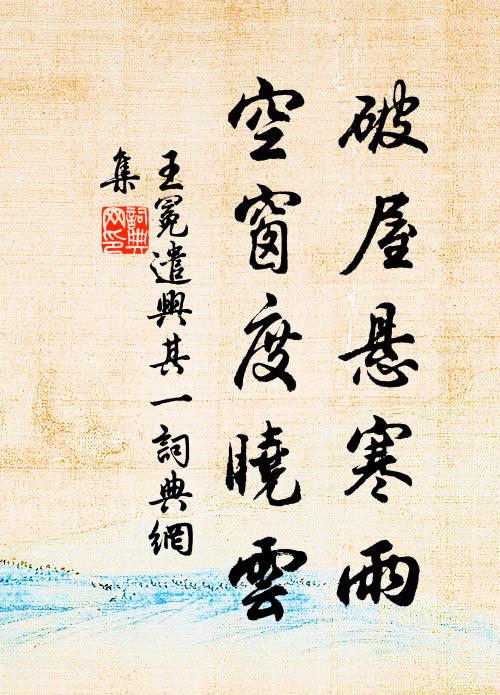 破屋悬寒雨
空窗度曉雲
王冕遣興其一詞典網
集
詞典
网印